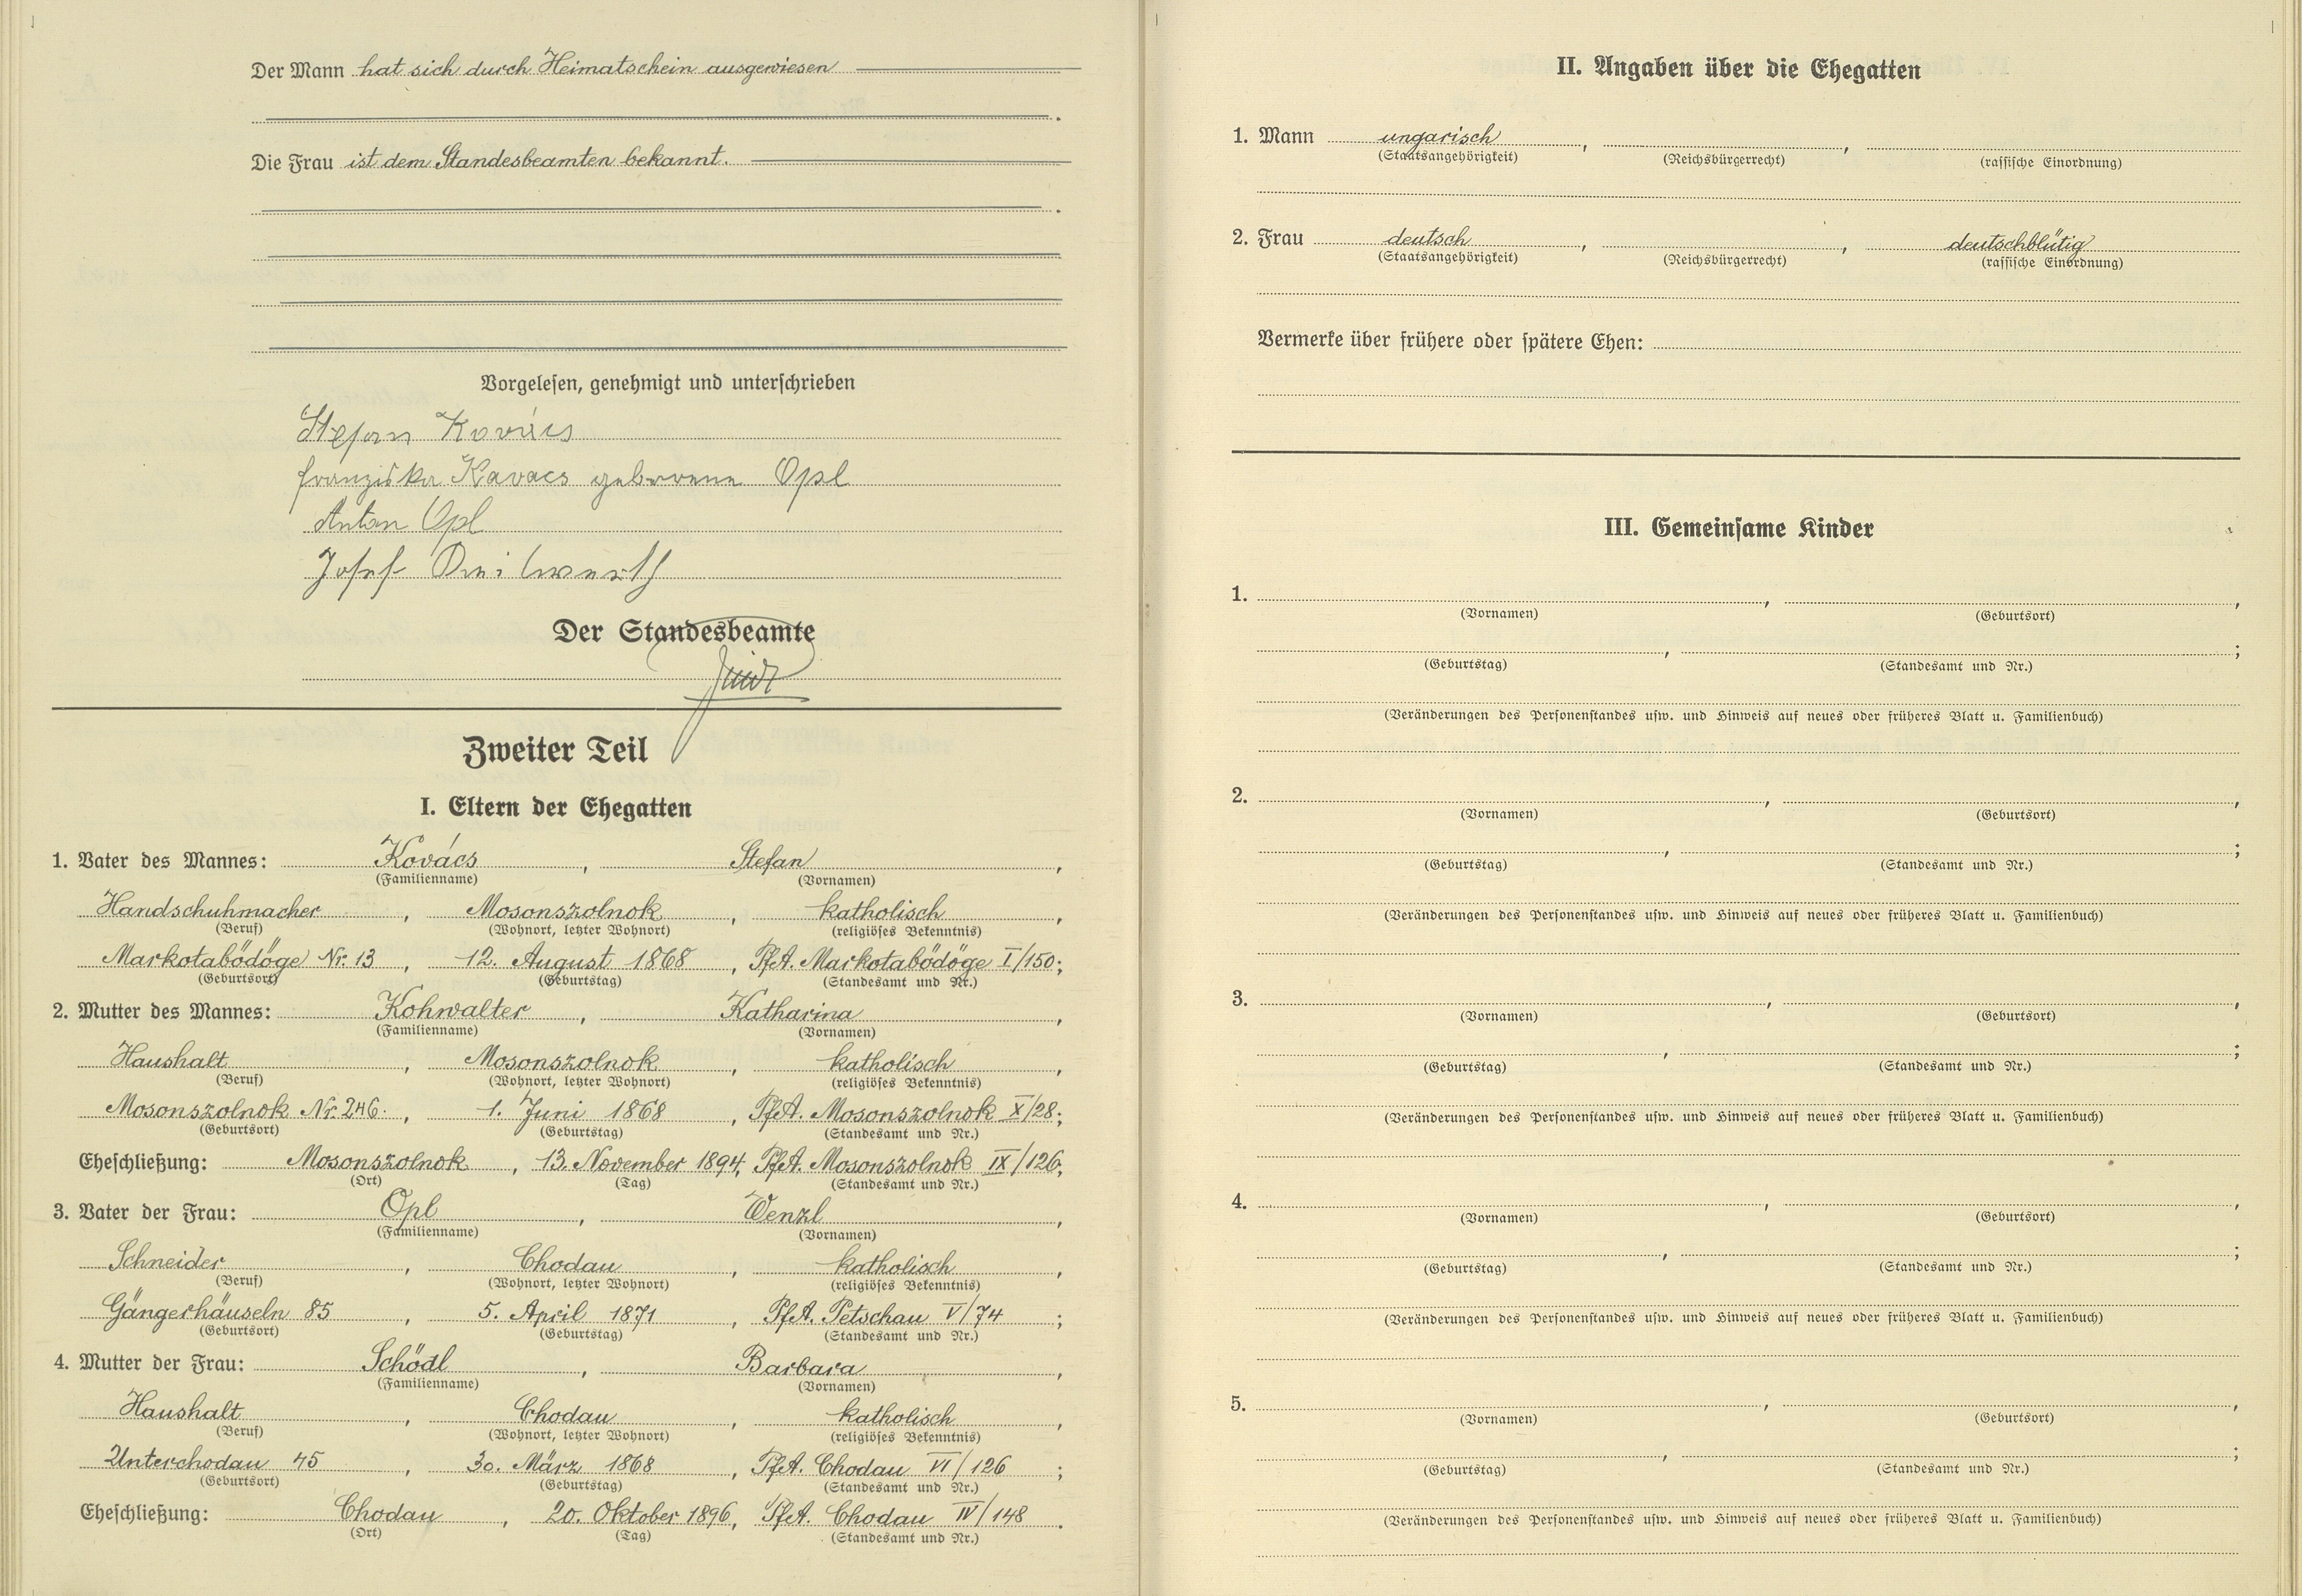 Der Mann hat sich durch Heimatschein ausgewiesen
Die Frau ist dem Standesbeamten bekannt.
Vorgelesen, genehmigt und unterschrieben
Stefan Kovács
Franziska Kavacs geborene Opl
Anton Opl
Josef
Der Standesbeamte
Zweiter Teil
I. Eltern der Ehegatten
1. Vater des Mannes: Kovács, Stefan,
(Familienname) (Vornamen)
Handschuhmacher, Mosonszolnok, katholisch,
(Beruf) (Wohnort, letzter Wohnort) (religiöses Bekenntnis)
Markotabödöge Nr. 13, 12. August 1868, PfA. Markotabödöge I/150;
(Geburtsort) (Geburtstag) (Standesamt und Nr.)
2. Mutter des Mannes: Kohwalter, Katharina,
(Familienname) (Vornamen)
Haushalt, Mosonszolnok, katholisch,
(Beruf) (Wohnort, letzter Wohnort) (religiöses Bekenntnis)
Mosonszolnok Nr. 246., 1. Juni 1868, PfA. Mosonszolnok X/28;
(Geburtsort) (Geburtstag) (Standesamt und Nr.)
Eheschließung: Mosonszolnok, 13. November 1894, PfA. Mosonszolnok IX/126;
(Ort) (Tag) (Standesamt und Nr.)
3. Vater der Frau: Opl, Wenzl,
(Familienname) (Vornamen)
Schneider, Chodau, katholisch,
(Beruf) (Wohnort, letzter Wohnort) (religiöses Bekenntnis)
Gängerhäuseln 85, 5. April 1871, PfA. Petschau V/74;
(Geburtsort) (Geburtstag) (Standesamt und Nr.)
4. Mutter der Frau: Schödl, Barbara,
(Familienname) (Vornamen)
Haushalt, Chodau, katholisch,
(Beruf) (Wohnort, letzter Wohnort) (religiöses Bekenntnis)
Unterchodau 45, 30. März 1868, PfA. Chodau VI/126;
(Geburtsort) (Geburtstag) (Standesamt und Nr.)
Eheschließung: Chodau, 20. Oktober 1896, PfA. Chodau IV/148.
(Ort) (Tag) (Standesamt und Nr.)
II. Angaben über die Ehegatten
1. Mann ungarisch, ,
(Staatsangehörigkeit) (Reichsbürgerrecht) (rassische Einordnung)
2. Frau deutsch, , deutschblütig
(Staatsangehörigkeit) (Reichsbürgerrecht) (rassische Einordnung)
Vermerke über frühere oder spätere Ehen:
III. Gemeinsame Kinder
1. , ,
(Vornamen) (Geburtsort)
, ;
(Geburtstag) (Standesamt und Nr.)
(Veränderungen des Personenstandes usw. und Hinweis auf neues oder früheres Blatt u. Familienbuch)
2. , ,
(Vornamen) (Geburtsort)
, ;
(Geburtstag) (Standesamt und Nr.)
(Veränderungen des Personenstandes usw. und Hinweis auf neues oder früheres Blatt u. Familienbuch)
3. , ,
(Vornamen) (Geburtsort)
, ;
(Geburtstag) (Standesamt und Nr.)
(Veränderungen des Personenstandes usw. und Hinweis auf neues oder früheres Blatt u. Familienbuch)
4. , ,
(Vornamen) (Geburtsort)
, ;
(Geburtstag) (Standesamt und Nr.)
(Veränderungen des Personenstandes usw. und Hinweis auf neues oder früheres Blatt u. Familienbuch)
5. , ,
(Vornamen) (Geburtsort)
, ;
(Geburtstag) (Standesamt und Nr.)
(Veränderungen des Personenstandes usw. und Hinweis auf neues oder früheres Blatt u. Familienbuch)